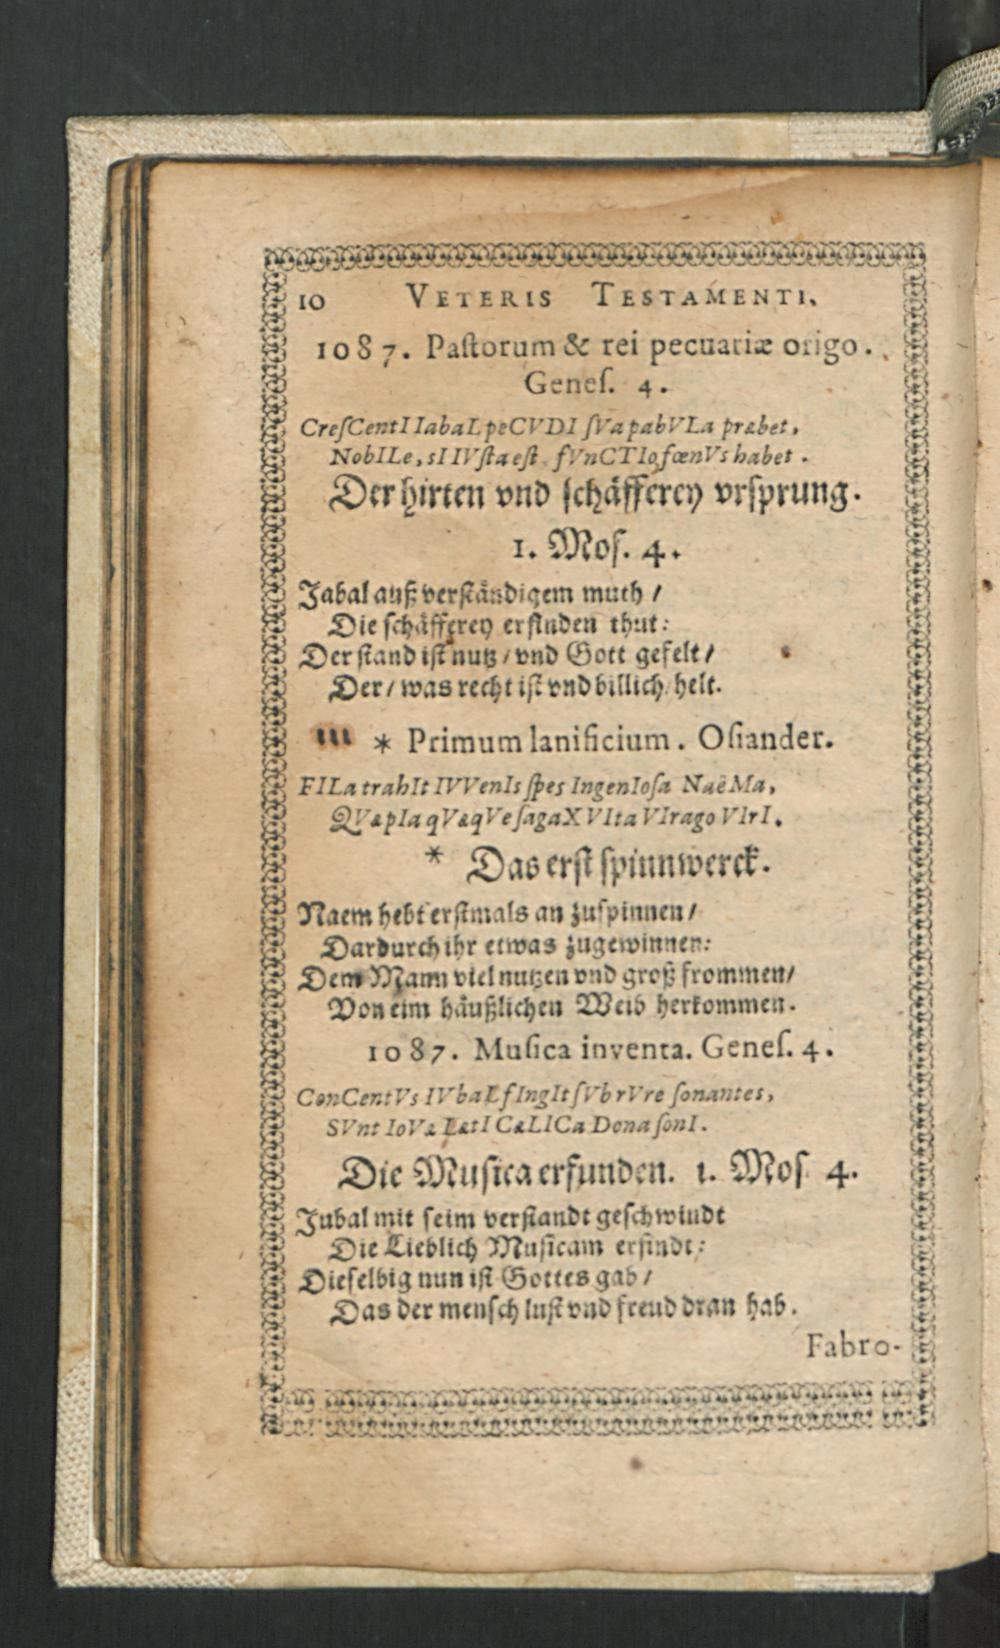 10 VETERIS TESTAMENTI.
1087. Paſtorum & rei pecuariæ origo.
Geneſ. 4.
CreſCentI IabaL peCVDI ſVa pabVLa præbet,
NobILe, sI IVſta eſt, fVnCTIo fœnVs habet.
Der hirten vnd ſchäfferey vrſprung.
1. Moſ. 4.
Jabal auß verſtändigem muth /
Die ſchäfferey erfinden thut:
Der ſtand iſt nutz / vnd Gott gefelt /
Der / was recht iſt vnd billich / helt.
* Primum lanificium. Oſiander.
FILa trahIt IVVenIs ſpes IngenIoſa NaëMa,
QVæ pIa qVæqVe ſagaX VIta VIrago VIrI.
* Das erſt ſpinnwerck.
Naem hebt erſtmals an zuſpinnen /
Dardurch ihr etwas zugewinnen:
Dem Mann viel nutzen vnd groß frommen /
Von eim häußlichen Weib herkommen.
1087. Muſica inventa. Geneſ. 4.
ConCentVs IVbaL fIngIt ſVb rVre ſonantes,
SVnt IoVæ LætI CæLICa Dona ſonI.
Die Muſica erfunden. 1. Moſ 4.
Jubal mit ſeim verſtandt geſchwindt
Die Lieblich Muſicam erfindt:
Dieſelbig nun iſt Gottes gab /
Das der menſch luſt vnd freud dran hab.
Fabro-